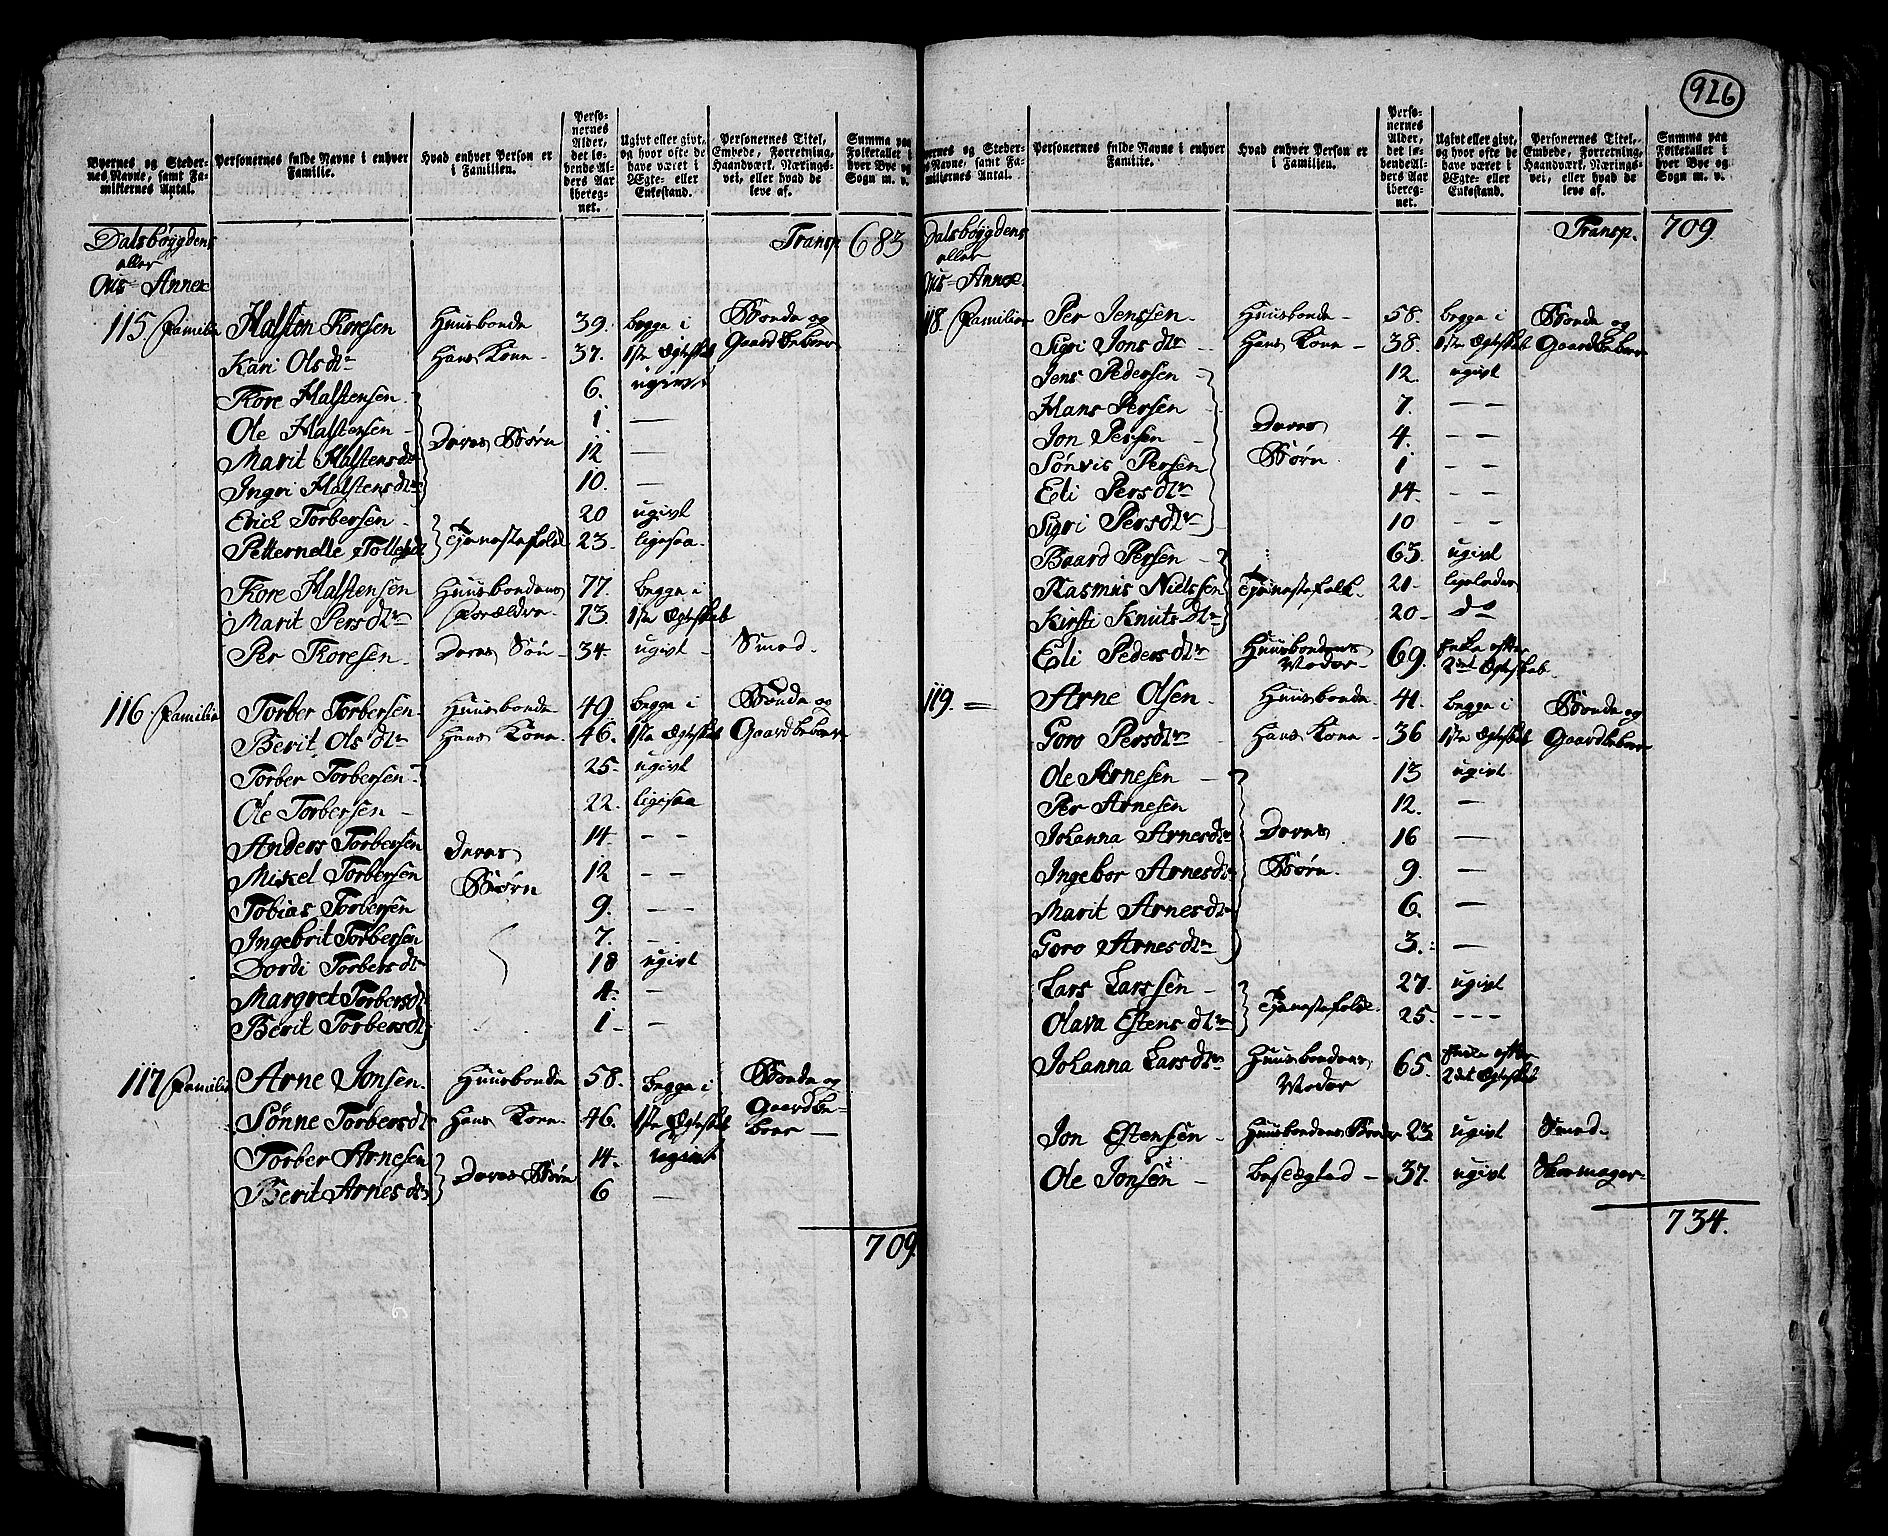 926
Byernes og Stedernes Navne, samt Familiernes Antal.
Personernes fulde Navne i enhver Familie.
Hvad enhver Person er i Familien.
Personernes Alder, det løbende Alders Aar iberegnet.
Ugivt eller givt, og hvor ofte de have været i Ægte- eller Enkestand.
Personernes Titel, Embede, Forretning, Haandværk, Næringsvei, eller hvad de leve af.
Summa paa Folketallet i hver Bye og Sogn m. v.
Dalsbøygdens Transp. 683
eller
Ous-Annex
115 Familie Halsten Toresen Huusbonde 39. begge i Bonde og
Kari Olsdtr Hans Kone 37. 1ste Ægteskab Gaardbeboer
Tore Halstensen 6. ugivt
Ole Halstensen 1. —
Deres Børn
Marit Halstensdtr 12 —
Ingri Halstensdtr 10. —
Erich Torbersen 20 ugivt
Petternelle Tollefsdtr Tjenestefolk 23. ligesaa
Tore Halstensen Huusbondens 77. begge i
Marit Persdtr Forældre 73. 1ste Ægteskab
Per Toresen Deres Søn 34. ugivt Smed.
116 Familie Torber Torbersen Huusbonde 49 begge i Bonde og
Berit Olsdtr Hans Kone 46. 1ste Ægteskab Gaardbeboer
Torber Torbersen 25. ugivt
Ole Torbersen 22. ligesaa
Anders Torbersen 14. — —
Deres
Mikel Torbersen 12 — —
Børn
Tobias Torbersen 9. — —
Ingebrit Torbersen 7. —
Dordi Torbersdtr 18 ugivt
Margret Torbersdtr 4. —
Berit Torbersdtr 1 —
117 Familie Arne Jonsen. Huusbonde 58. begge i Bonde og
Sønne Torbersdtr Hans Kone 46. 1ste Ægteskab Gaardbe-
boer —
Torber Arnesen 14. ugivt
Deres Børn
Berit Arnesdtr 6 —
709
Byernes og Stedernes Navne, samt Familiernes Antal.
Personernes fulde Navne i enhver Familie.
Hvad enhver Person er i Familien.
Personernes Alder, det løbende Alders Aar iberegnet.
Ugivt eller givt, og hvor ofte de have været i Ægte- eller Enkestand.
Personernes Titel, Embede, Forretning, Haandværk, Næringsvei, eller hvad de leve af.
Summa paa Folketallet i hver Bye og Sogn m. v.
Dalsbøygdens Transp. 709.
eller
Ous-Annex.
118 Familie Per Jenssen Huusbonde 58. begge i Bonde og
Sigri Jonsdtr Hans Kone 38. 1ste Ægteskab Gaardbeboer
Jens Pedersen 12. ugivt
Hans Persen 7. — —
Deres
Jon Persen 4. — —
Børn
Sønvis Persen 1 — —
Eli Persdtr 14. — —
Sigri Persdtr 10 — —
Baard Persen 63. ugivt
Rasmus Nielssen Tjenestefolk. 21. ligeledes
Kirsti Knutsdtr 20 do
Eli Pedersdtr Huusbondens Moder 69. Enke efter 2det Ægteskab.
119. = Arne Olsen Huusbonde 41. begge i Bonde og
Goro Persdtr Hans Kone 36 1ste Ægteskab Gaardbeboer
Ole Arnesen 13 ugivt
Per Arnesen 12. —
Johanna Arnesdtr Deres 16 —
Ingebor Arnesdtr Børn 9. —
Marit Arnesdtr 6. —
Goro Arnesdtr 3. —
Lars Larssen 27. ugivt
Olava Estensdtr Tjenestefolk 25. - - -
Johanna Larsdtr Huusbondens Moder 65. Enke efter 2det Ægteskab
Jon Estensen Huusbondens 23 ugivt Smed.
Ole Jonsen besleigtad 37. ugivt Skomager
734.